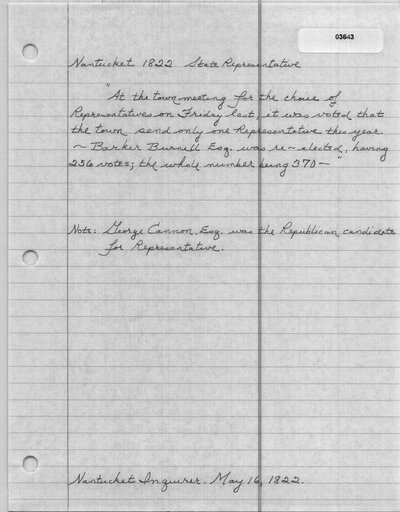 03643
Nantucket 1822 State Representative
"At the town meeting for the choice of
Representatives on Friday last, it was voted that
the town send only one Representative this year.
~ Barker Burnell Esq. was re-elected, having
256 votes; the whole number being 370 — "
Note: George Cannon, Esq. was the Republican candidate
for Representative.
Nantucket Inquirer. May 16, 1822.